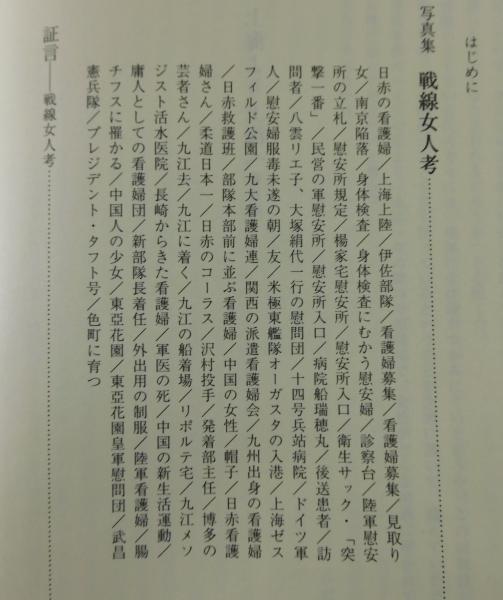 はじめに
写真集　戦線女人考
日赤の看護婦／上海上陸／伊佐部隊／看護婦募集／看護婦募集／見取り
女／南京陥落／身体検査／身体検査にむかう慰安婦／診察台／陸軍慰安
所の立札／慰安所規定／楊家宅慰安所／慰安所入口／衛生サック・「突
撃一番」／民営の軍慰安所／慰安所入口／病院船瑞穂丸／後送患者／訪
問者／八雲リエ子、大塚絹代一行の慰問団／十四号兵站病院／ドイツ軍
人／慰安婦服毒未遂の朝／友／米極東艦隊オーガスタの入港／上海ゼス
フィルド公園／九大看護婦連／関西の派遣看護婦会／九州出身の看護婦
／日赤救護班／部隊本部前に並ぶ看護婦／中国の女性／帽子／日赤看護
婦さん／柔道日本一／日赤のコーラス／沢村投手／発着部主任／博多の
芸者さん／九江去／九江に着く／九江の船着場／リボルテ宅／九江メソ
ジスト活水医院／長崎からきた看護婦／軍医の死／中国の新生活運動／
庸人としての看護婦団／新部隊長着任／外出用の制服／陸軍看護婦／腸
チフスに罹かる／中国人の少女／東亞花園／東亞花園皇軍慰問団／武昌
憲兵隊／プレジデント・タフト号／色町に育つ
証言――戦線女人考